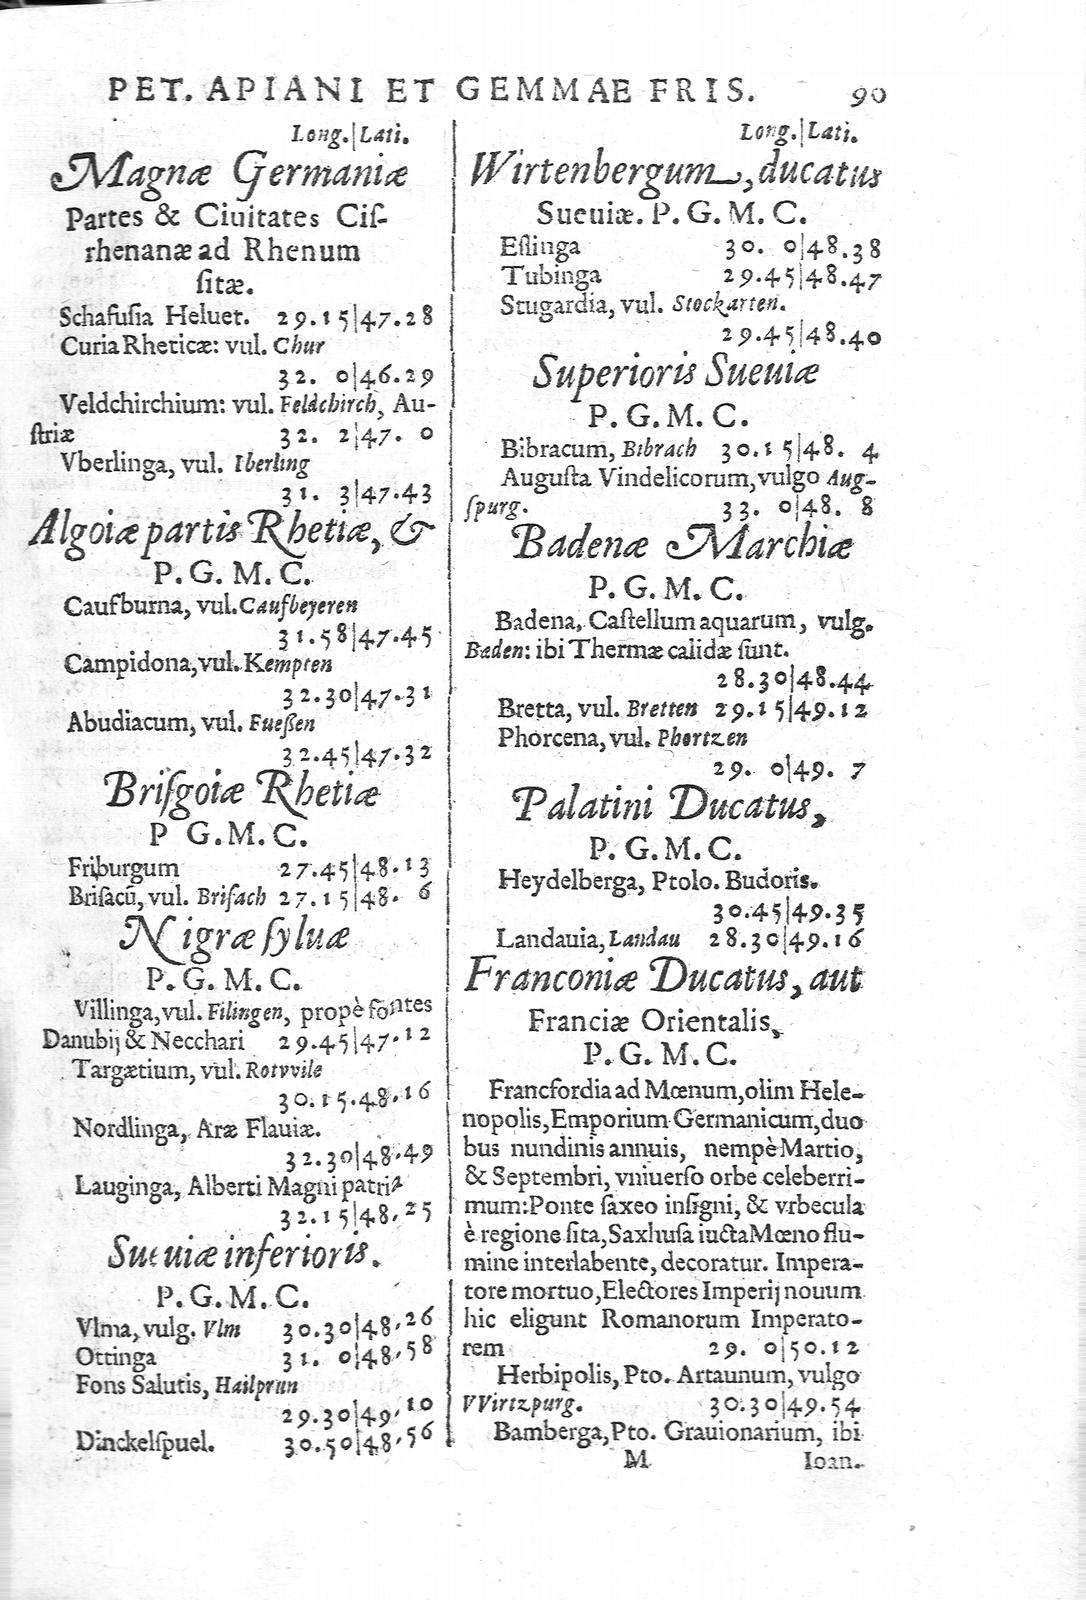 PET. APIANI ET GEMMAE FRIS. 90
Long.|Lati.
Magnæ Germaniæ
Partes & Ciuitates Ciſ-
rhenanæ ad Rhenum
ſitæ.
Schafuſia Heluet. 29.15|47.28
Curia Rheticæ: vul. Chur
32. 0|46.29
Veldchirchium: vul. Feldchirch, Au-
ſtriæ 32. 2|47. 0
Vberlinga, vul. Iberling
31. 3|47.43
Algoiæ partis Rhetiæ, &
P. G. M. C.
Caufburna, vul. Caufbeyeren
31.58|47.45
Campidona, vul. Kempten
32.30|47.31
Abudiacum, vul. Fueßen
32.45|47.32
Briſgoiæ Rhetiæ
P G. M. C.
Friburgum 27.45|48.13
Briſacū, vul. Briſach 27.15|48. 6
Nigræ ſyluæ
P. G. M. C.
Villinga, vul. Filingen, propè fontes
Danubij & Necchari 29.45|47.12
Targætium, vul. Rotvvile
30.15.48.16
Nordlinga, Aræ Flauiæ.
32.30|48.49
Lauginga, Alberti Magni patria
32.15|48.25
Sueuiæ inferioris.
P. G. M. C.
Vlma, vulg. Vlm 30.30|48.26
Ottinga 31. 0|48.58
Fons Salutis, Hailprun
29.30|49.10
Dinckelſpuel. 30.50|48.56
Long.|Lati.
Wirtenbergum, ducatus
Sueuiæ. P. G. M. C.
Eſlinga 30. 0|48.38
Tubinga 29.45|48.47
Stugardia, vul. Stockarten.
29.45|48.40
Superioris Sueuiæ
P. G. M. C.
Bibracum, Bibrach 30.15|48. 4
Auguſta Vindelicorum, vulgo Aug-
ſpurg. 33. 0|48. 8
Badenæ Marchiæ
P. G. M. C.
Badena, Caſtellum aquarum, vulg.
Baden: ibi Thermæ calidæ ſunt.
28.30|48.44
Bretta, vul. Bretten 29.15|49.12
Phorcena, vul. Phortzen
29. 0|49. 7
Palatini Ducatus,
P. G. M. C.
Heydelberga, Ptolo. Budoris.
30.45|49.35
Landauia, Landau 28.30|49.16
Franconiæ Ducatus, aut
Franciæ Orientalis,
P. G. M. C.
Francfordia ad Mœnum, olim Hele-
nopolis, Emporium Germanicum, duo
bus nundinis annuis, nempè Martio,
& Septembri, vniuerſo orbe celeberri-
mum: Ponte ſaxeo inſigni, & vrbecula
è regione ſita, Saxhuſa iucta Mœno flu-
mine interlabente, decoratur. Impera-
tore mortuo, Electores Imperij nouum
hic eligunt Romanorum Imperato-
rem 29. 0|50.12
Herbipolis, Pto. Artaunum, vulgo
VVirtzpurg. 30.30|49.54
Bamberga, Pto. Grauionarium, ibi
M Ioan.